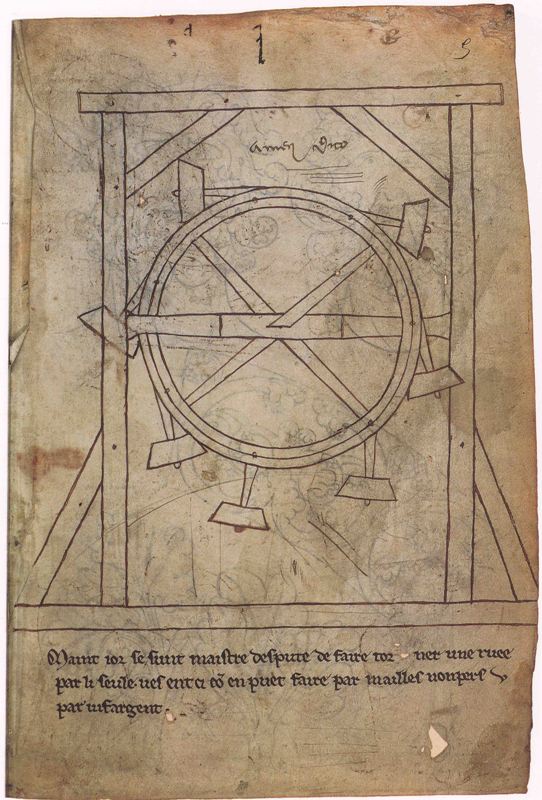 5
amen dico
Maint ior se sunt maistre despute de faire torner une ruee
par li seule ves ent ci con en puet faire par mailles nonpers
par vif argent.